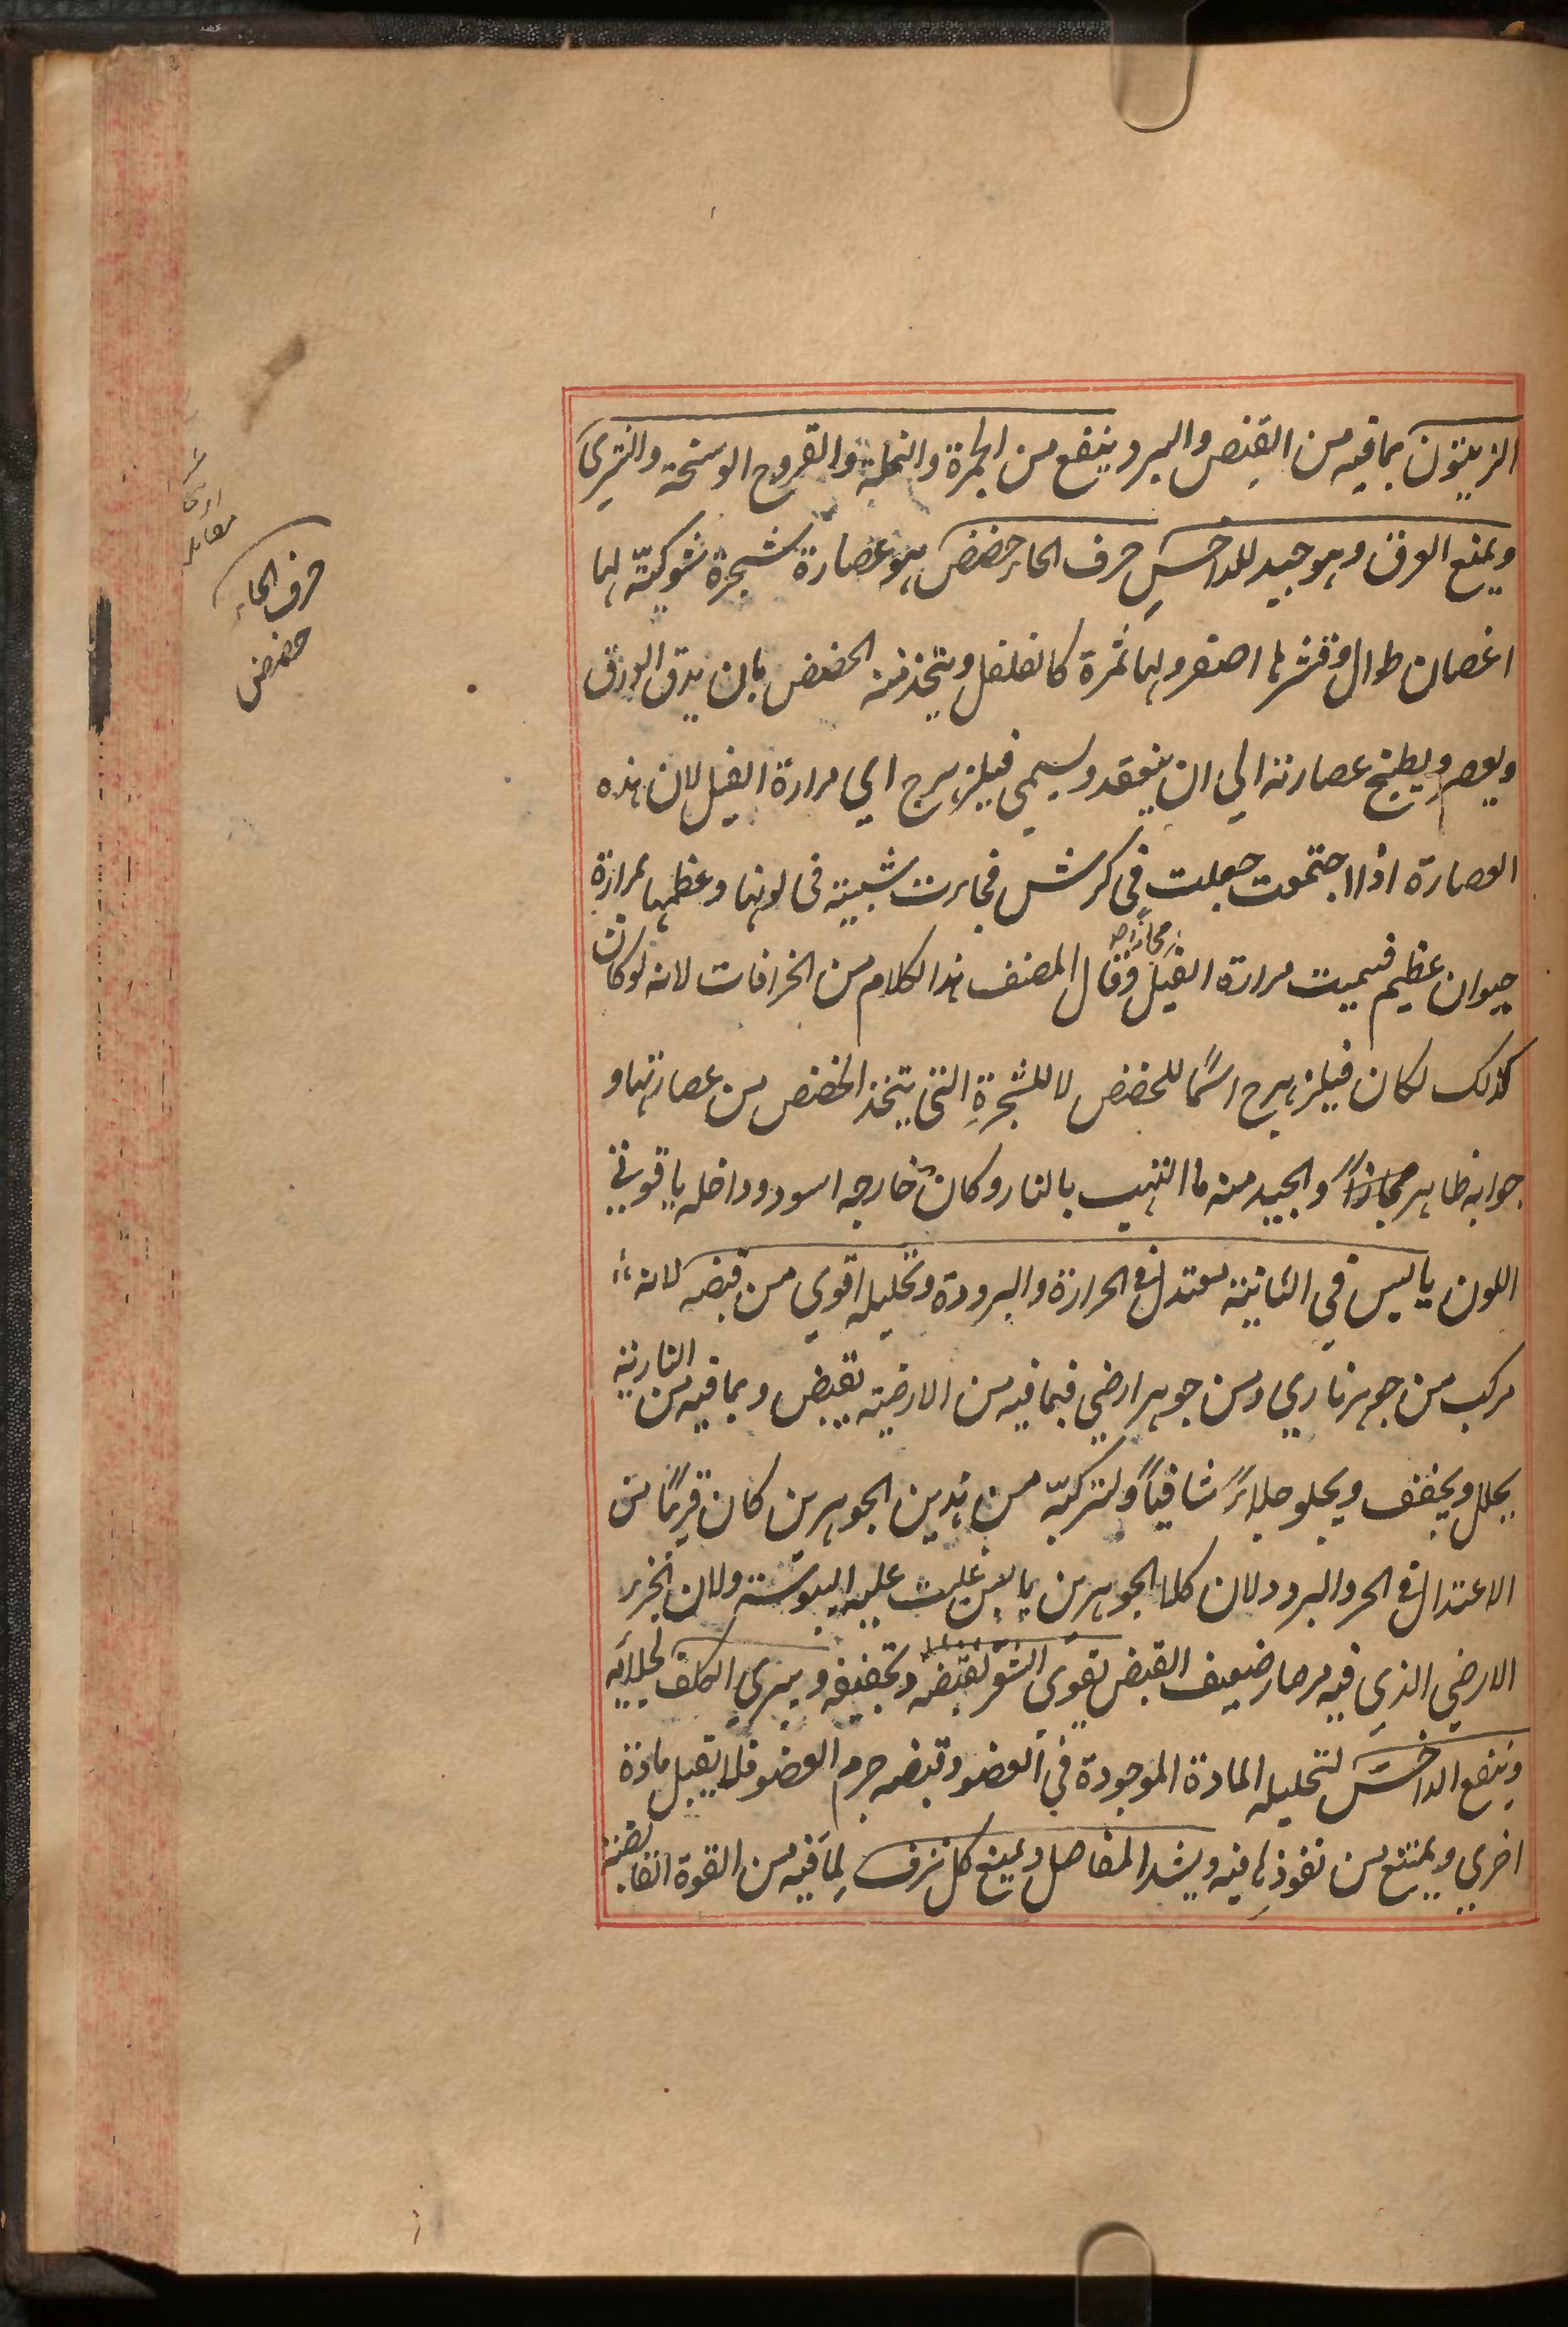 الزيتون بما فيه من القبض والبرد وينفع من الجمرة والنملة والقروح الوسخة والشرى
ويمنع العرق وهو جيد للداخس حرف الحاء حضض هو عصارة شجرة شوكية لها
اغصان طوال وقشرها اصفر ولها ثمرة كالفلفل ويتخذ منه الحضض بان يدق الورق
ويعصر ويطبخ عصارته الي ان ينعقد ويسمي فيلزهرج اي مرارة الفيل لان هذه
العصارة اذا اجتمعت جعلت في كرش فجاءت شبيهة في لونها وعظمها بمرارة
حيوان عظيم فسميت مرارة الفيل مجازا وقال المصنف هذا الكلام من الخرافات لانه لو كان
كذلك لكان فيلزهرج اسمًا للحضض لا للشجرة التي يتخذ الحضض من عصارتها و
جوابه ظاهر والجيد منه ما التهب بالنار وكان خارجه اسود وداخله ياقوتي
اللون يابس في الثانية معتدل في الحرارة والبرودة وتحليله اقوي من قبضه لانه
مركب من جوهر ناري ومن جوهر ارضي فبما فيه من الارضية يقبض وبما فيه من النارية
يحلل ويجفف ويجلو جلاءً شافيًا ولتركبه من هذين الجوهرين كان قريبًا من
الاعتدال في الحر والبرد ولان كلا الجوهرين يابس غلبت عليه اليبوسة ولان الجزء
الارضي الذي فيه صار ضعيف القبض يقوي الشعر لقبضه وتجفيفه ويبري الكلف لجلائه
وينفع الداخس لتحليله المادة الموجودة في العضو وقبضه جرم العضو فلا يقبل مادة
اخري ويمتنع من نفوذها فيه ويشد المفاصل ويمنع كل نزف لما فيه من القوة القابضة
حرف الحاء
حضض